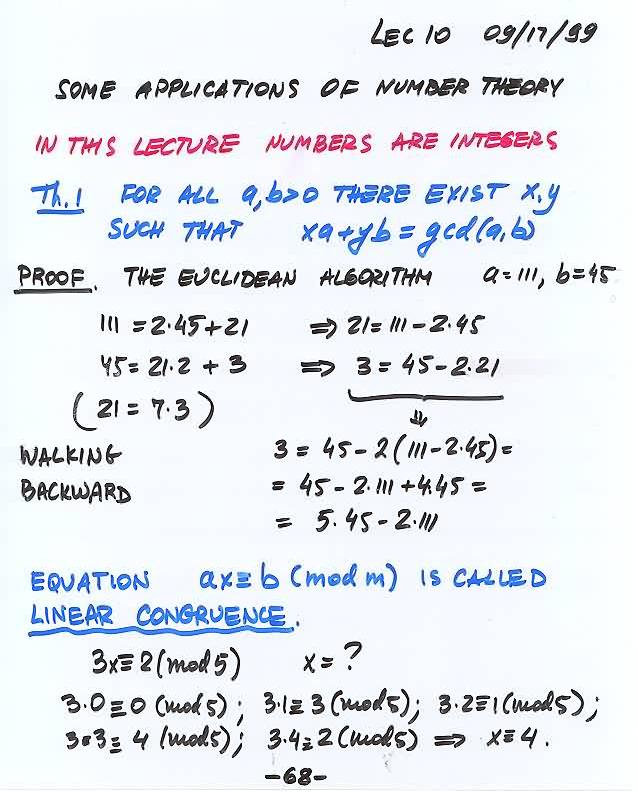 LEC 10 09/17/99
SOME APPLICATIONS OF NUMBER THEORY
IN THIS LECTURE NUMBERS ARE INTEGERS
Th.1 FOR ALL a,b>0 THERE EXIST x,y
SUCH THAT xa+yb=gcd(a,b)
PROOF. THE EUCLIDEAN ALGORITHM a=111, b=45
111=2·45+21 ⇒ 21=111-2·45
45=21·2+3 ⇒ 3=45-2·21
(21=7·3) ⇓
WALKING 3=45-2(111-2·45)=
BACKWARD =45-2·111+4·45=
=5·45-2·111
EQUATION ax≡b (mod m) IS CALLED
LINEAR CONGRUENCE.
3x≡2(mod 5) x=?
3·0≡0 (mod 5); 3·1≡3(mod 5); 3·2≡1(mod 5);
3·3≡4 (mod 5); 3·4≡2(mod 5) ⇒ x≡4.
-68-